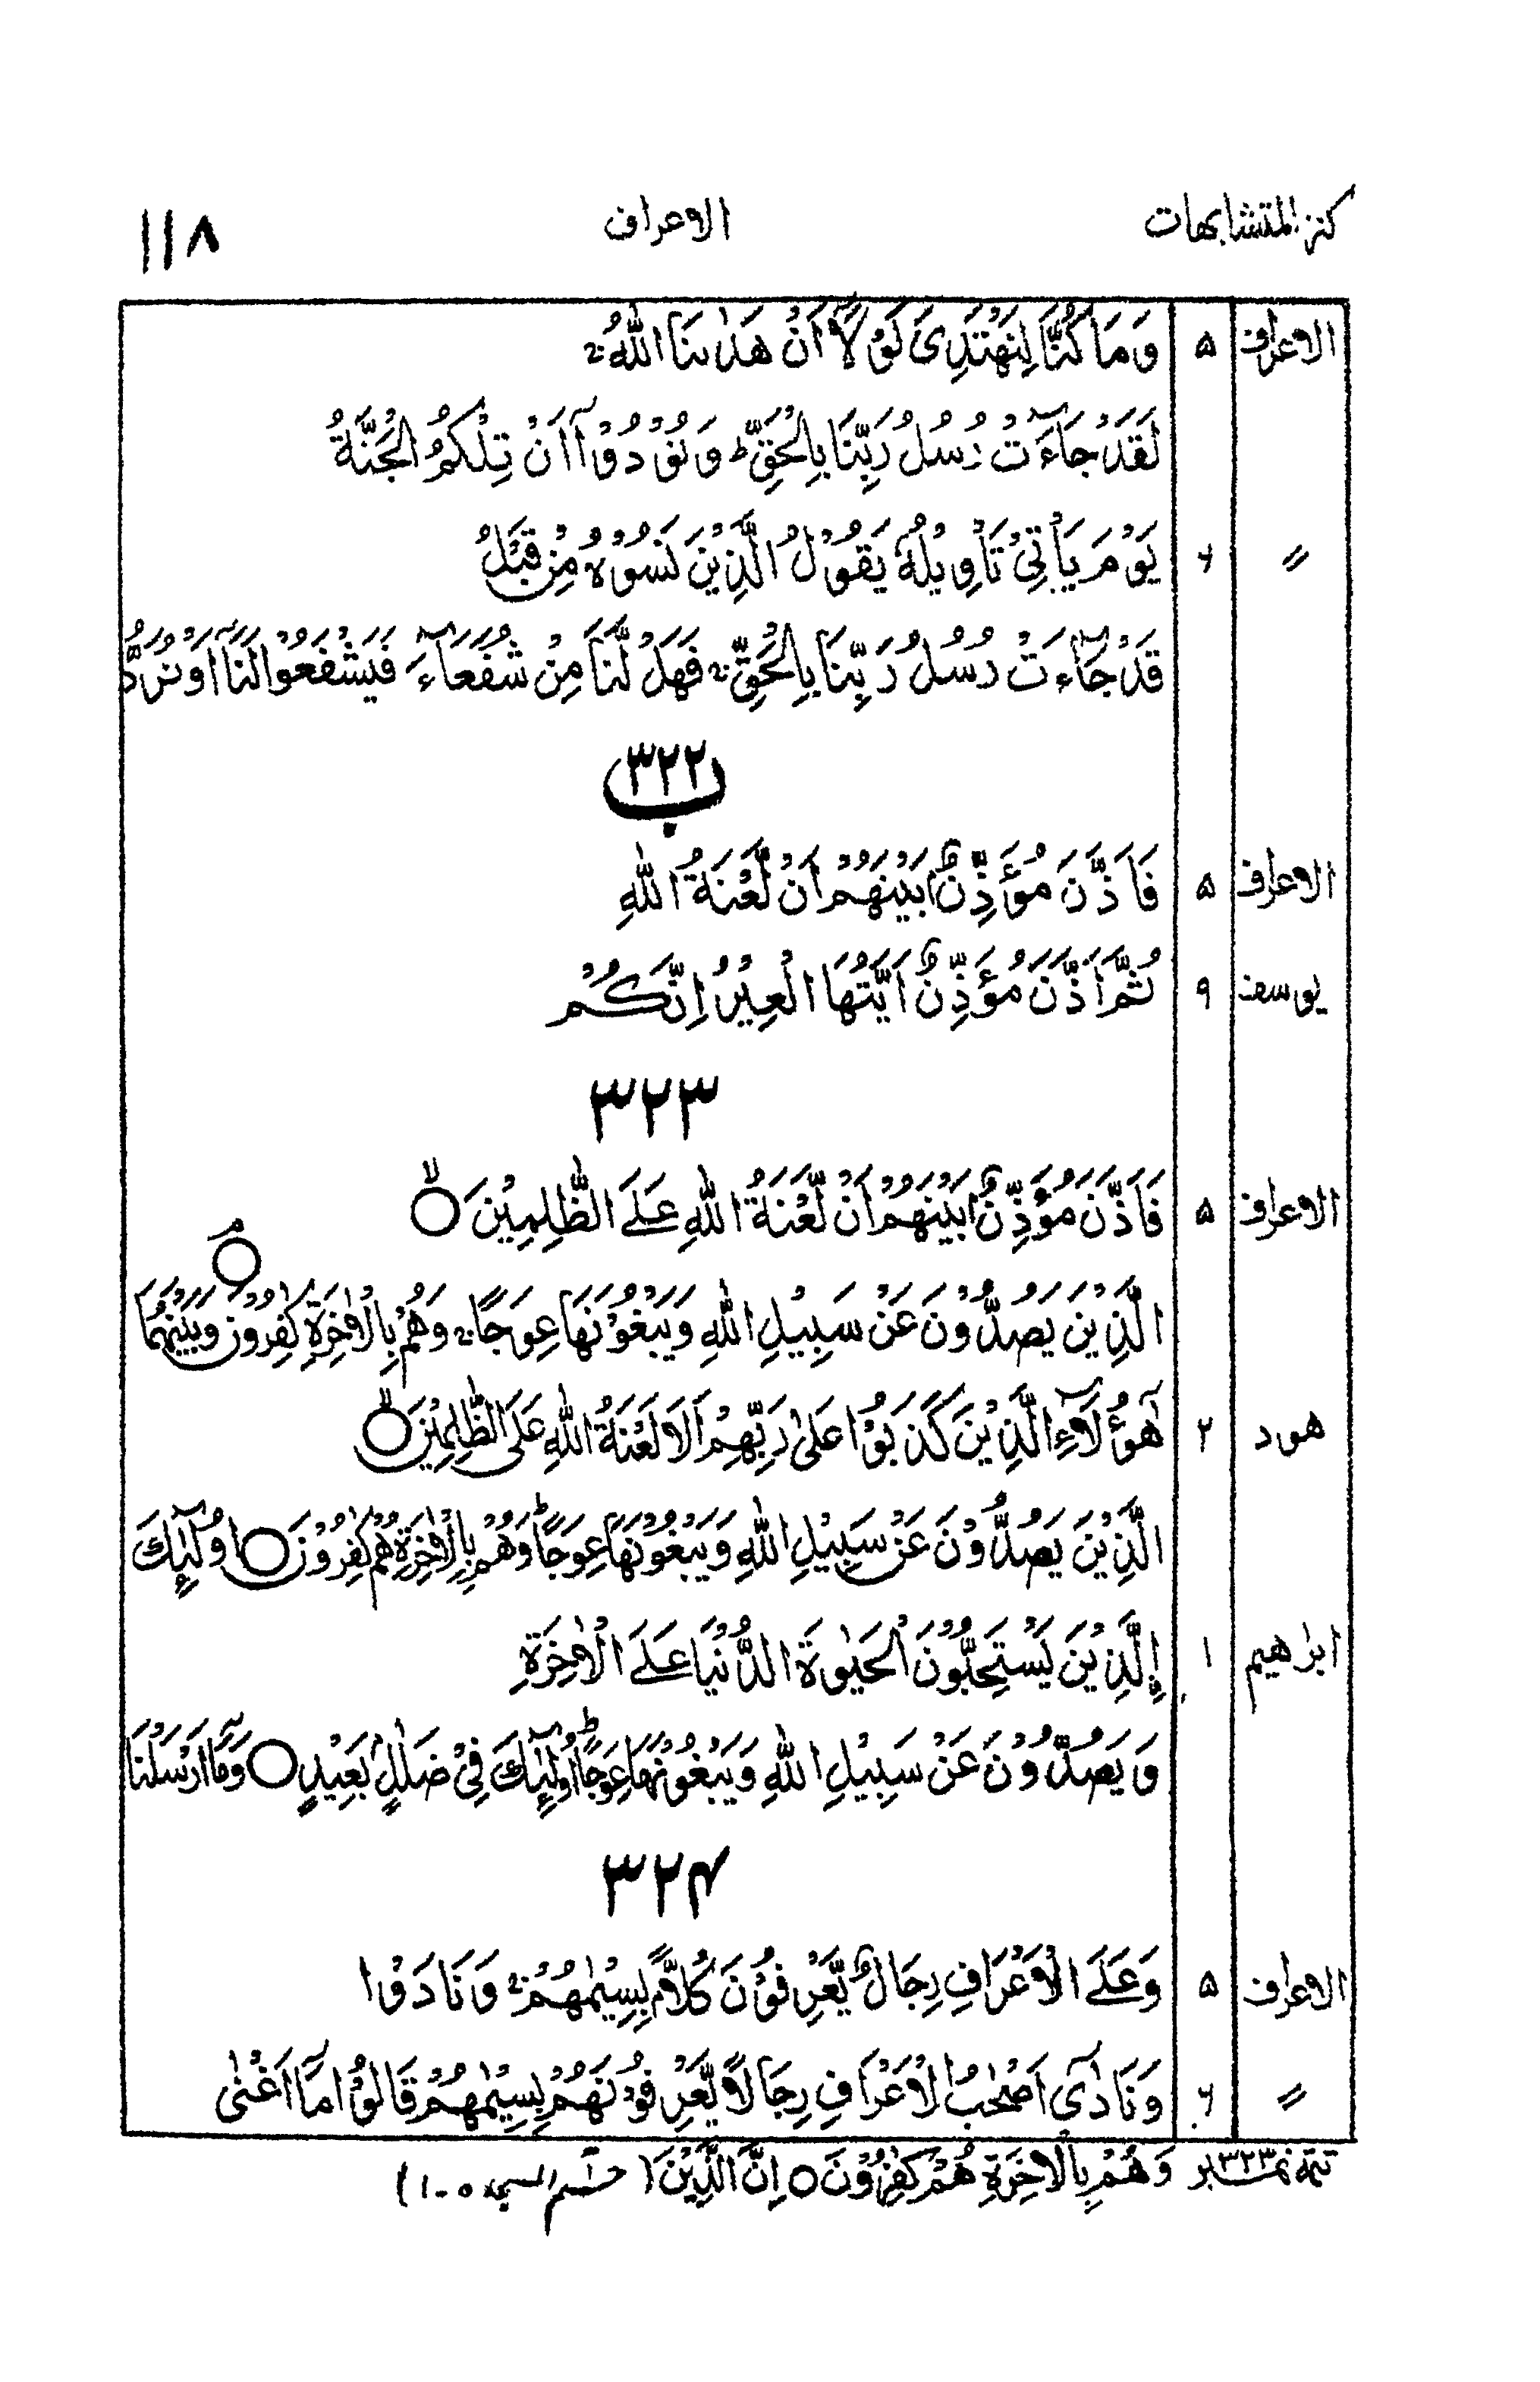 كنز المتشابهات الاعراف ١١٨
الاعراف ۵ وَمَا كُنَّا لِنَهْتَدِىَ لَوْ لَآ اَنْ هَدٰىنَا اللّٰهُ ۚ
لَقَدْ جَآءَتْ رُسُلُ رَبِّنَا بِالْحَقِّ ؕ وَنُوْدُوْٓا اَنْ تِلْكُمُ الْجَنَّةُ
〃 ۶ يَوْمَ يَاْتِىْ تَاْوِيْلُهٗ يَقُوْلُ الَّذِيْنَ نَسُوْهُ مِنْ قَبْلُ
قَدْ جَآءَتْ رُسُلُ رَبِّنَا بِالْحَقِّ ۚ فَهَلْ لَّنَا مِنْ شُفَعَآءَ فَيَشْفَعُوْا لَنَآ اَوْ نُرَدُّ
٣٢٢
ب
الاعراف ۵ فَاَذَّنَ مُؤَذِّنٌۢ بَيْنَهُمْ اَنْ لَّعْنَةُ اللّٰهِ
يوسف ٩ ثُمَّ اَذَّنَ مُؤَذِّنٌ اَيَّتُهَا الْعِيْرُ اِنَّكُمْ
٣٢٣
الاعراف ۵ فَاَذَّنَ مُؤَذِّنٌۢ بَيْنَهُمْ اَنْ لَّعْنَةُ اللّٰهِ عَلَى الظّٰلِمِيْنَ ○ۙ
الَّذِيْنَ يَصُدُّوْنَ عَنْ سَبِيْلِ اللّٰهِ وَيَبْغُوْنَهَا عِوَجًا ۚ وَهُمْ بِالْاٰخِرَةِ كٰفِرُوْنَ ○ۘ وَبَيْنَهُمَا
هود ٢ هٰٓؤُلَآءِ الَّذِيْنَ كَذَبُوْا عَلٰى رَبِّهِمْ اَلَا لَعْنَةُ اللّٰهِ عَلَى الظّٰلِمِيْنَ ○ۙ
الَّذِيْنَ يَصُدُّوْنَ عَنْ سَبِيْلِ اللّٰهِ وَيَبْغُوْنَهَا عِوَجًا ؕ وَهُمْ بِالْاٰخِرَةِ هُمْ كٰفِرُوْنَ ○ اُولٰٓئِكَ
ابرٰهيم ١ اِۨلَّذِيْنَ يَسْتَحِبُّوْنَ الْحَيٰوةَ الدُّنْيَا عَلَى الْاٰخِرَةِ
وَيَصُدُّوْنَ عَنْ سَبِيْلِ اللّٰهِ وَيَبْغُوْنَهَا عِوَجًا ؕ اُولٰٓئِكَ فِىْ ضَلٰلٍۢ بَعِيْدٍ ○ وَمَآ اَرْسَلْنَا
٣٢۴
الاعراف ۵ وَعَلَى الْاَعْرَافِ رِجَالٌ يَّعْرِفُوْنَ كُلًّاۢ بِسِيْمٰهُمْ ۚ وَنَادَوْا
〃 ۶ وَنَادٰٓى اَصْحٰبُ الْاَعْرَافِ رِجَالًا يَّعْرِفُوْنَهُمْ بِسِيْمٰهُمْ قَالُوْا مَآ اَغْنٰى
تتمه نمبر ٣٢٣ وَهُمْ بِالْاٰخِرَةِ هُمْ كٰفِرُوْنَ ○ اِنَّ الَّذِيْنَ (حٰمٓ السجده ١-)